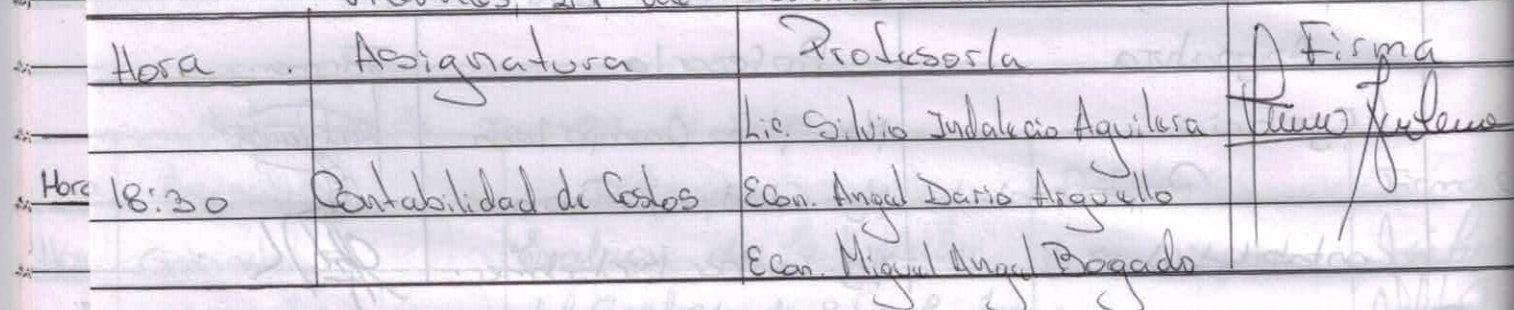 Hora Asignatura Profesor/a Firma
Lic. Silvio Indalecio Aguilera
Hora 18:30 Contabilidad de Costos Econ. Angel Dario Arguello
Econ. Miguel Angel Bogado